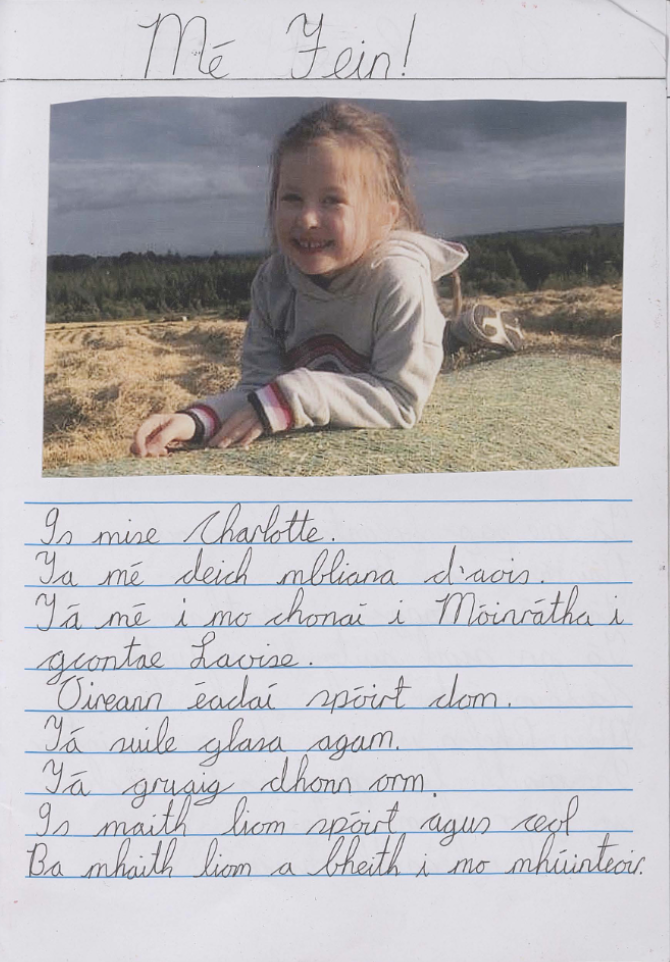 Mé Fein!
Is mise Charlotte.
Ta mé deich mbliana d'aois.
Tá mé i mo chonaí i Móinrátha i
gcontae Laoise.
Oireann éadaí spóirt dom.
Tá suile glasa agam.
Tá gruaig dhonn orm.
Is maith liom spóirt agus ceol
Ba mhaith liom a bheith i mo mhúinteoir.